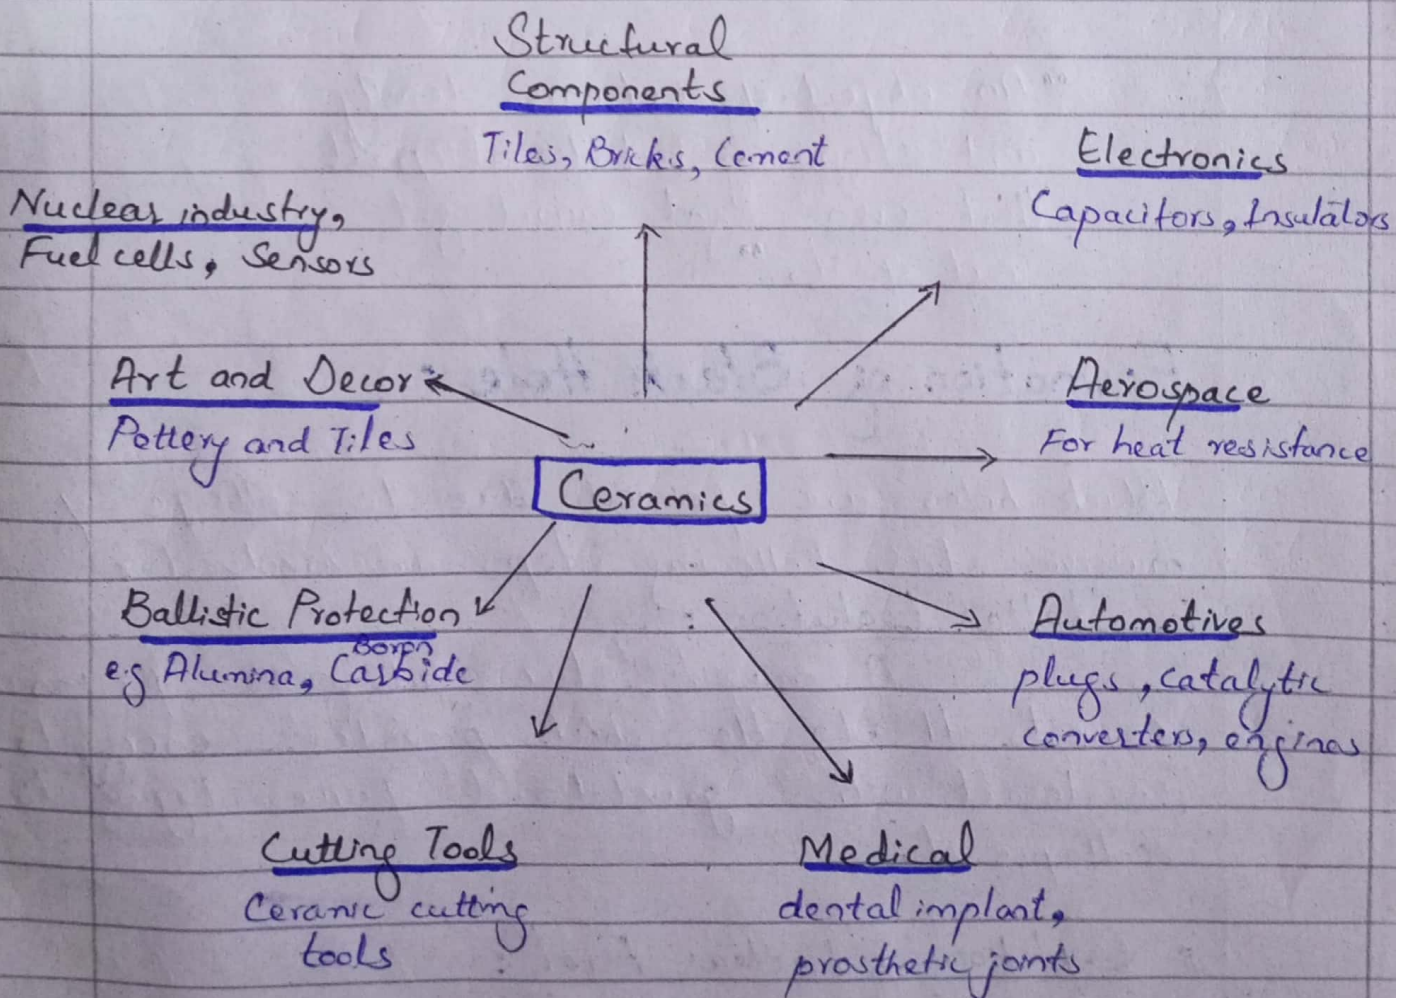 Structural
Components
Tiles, Bricks, Cement
Electronics
Capacitors, Insulators
Nuclear industry,
Fuel cells, Sensors
Art and Decor
Pottery and Tiles
Aerospace
For heat resistance
Ceramics
Ballistic Protection
e.g Alumina, Boron Carbide
Automotives
plugs, catalytic
converters, engines
Cutting Tools
Ceramic cutting
tools
Medical
dental implant,
prosthetic joints